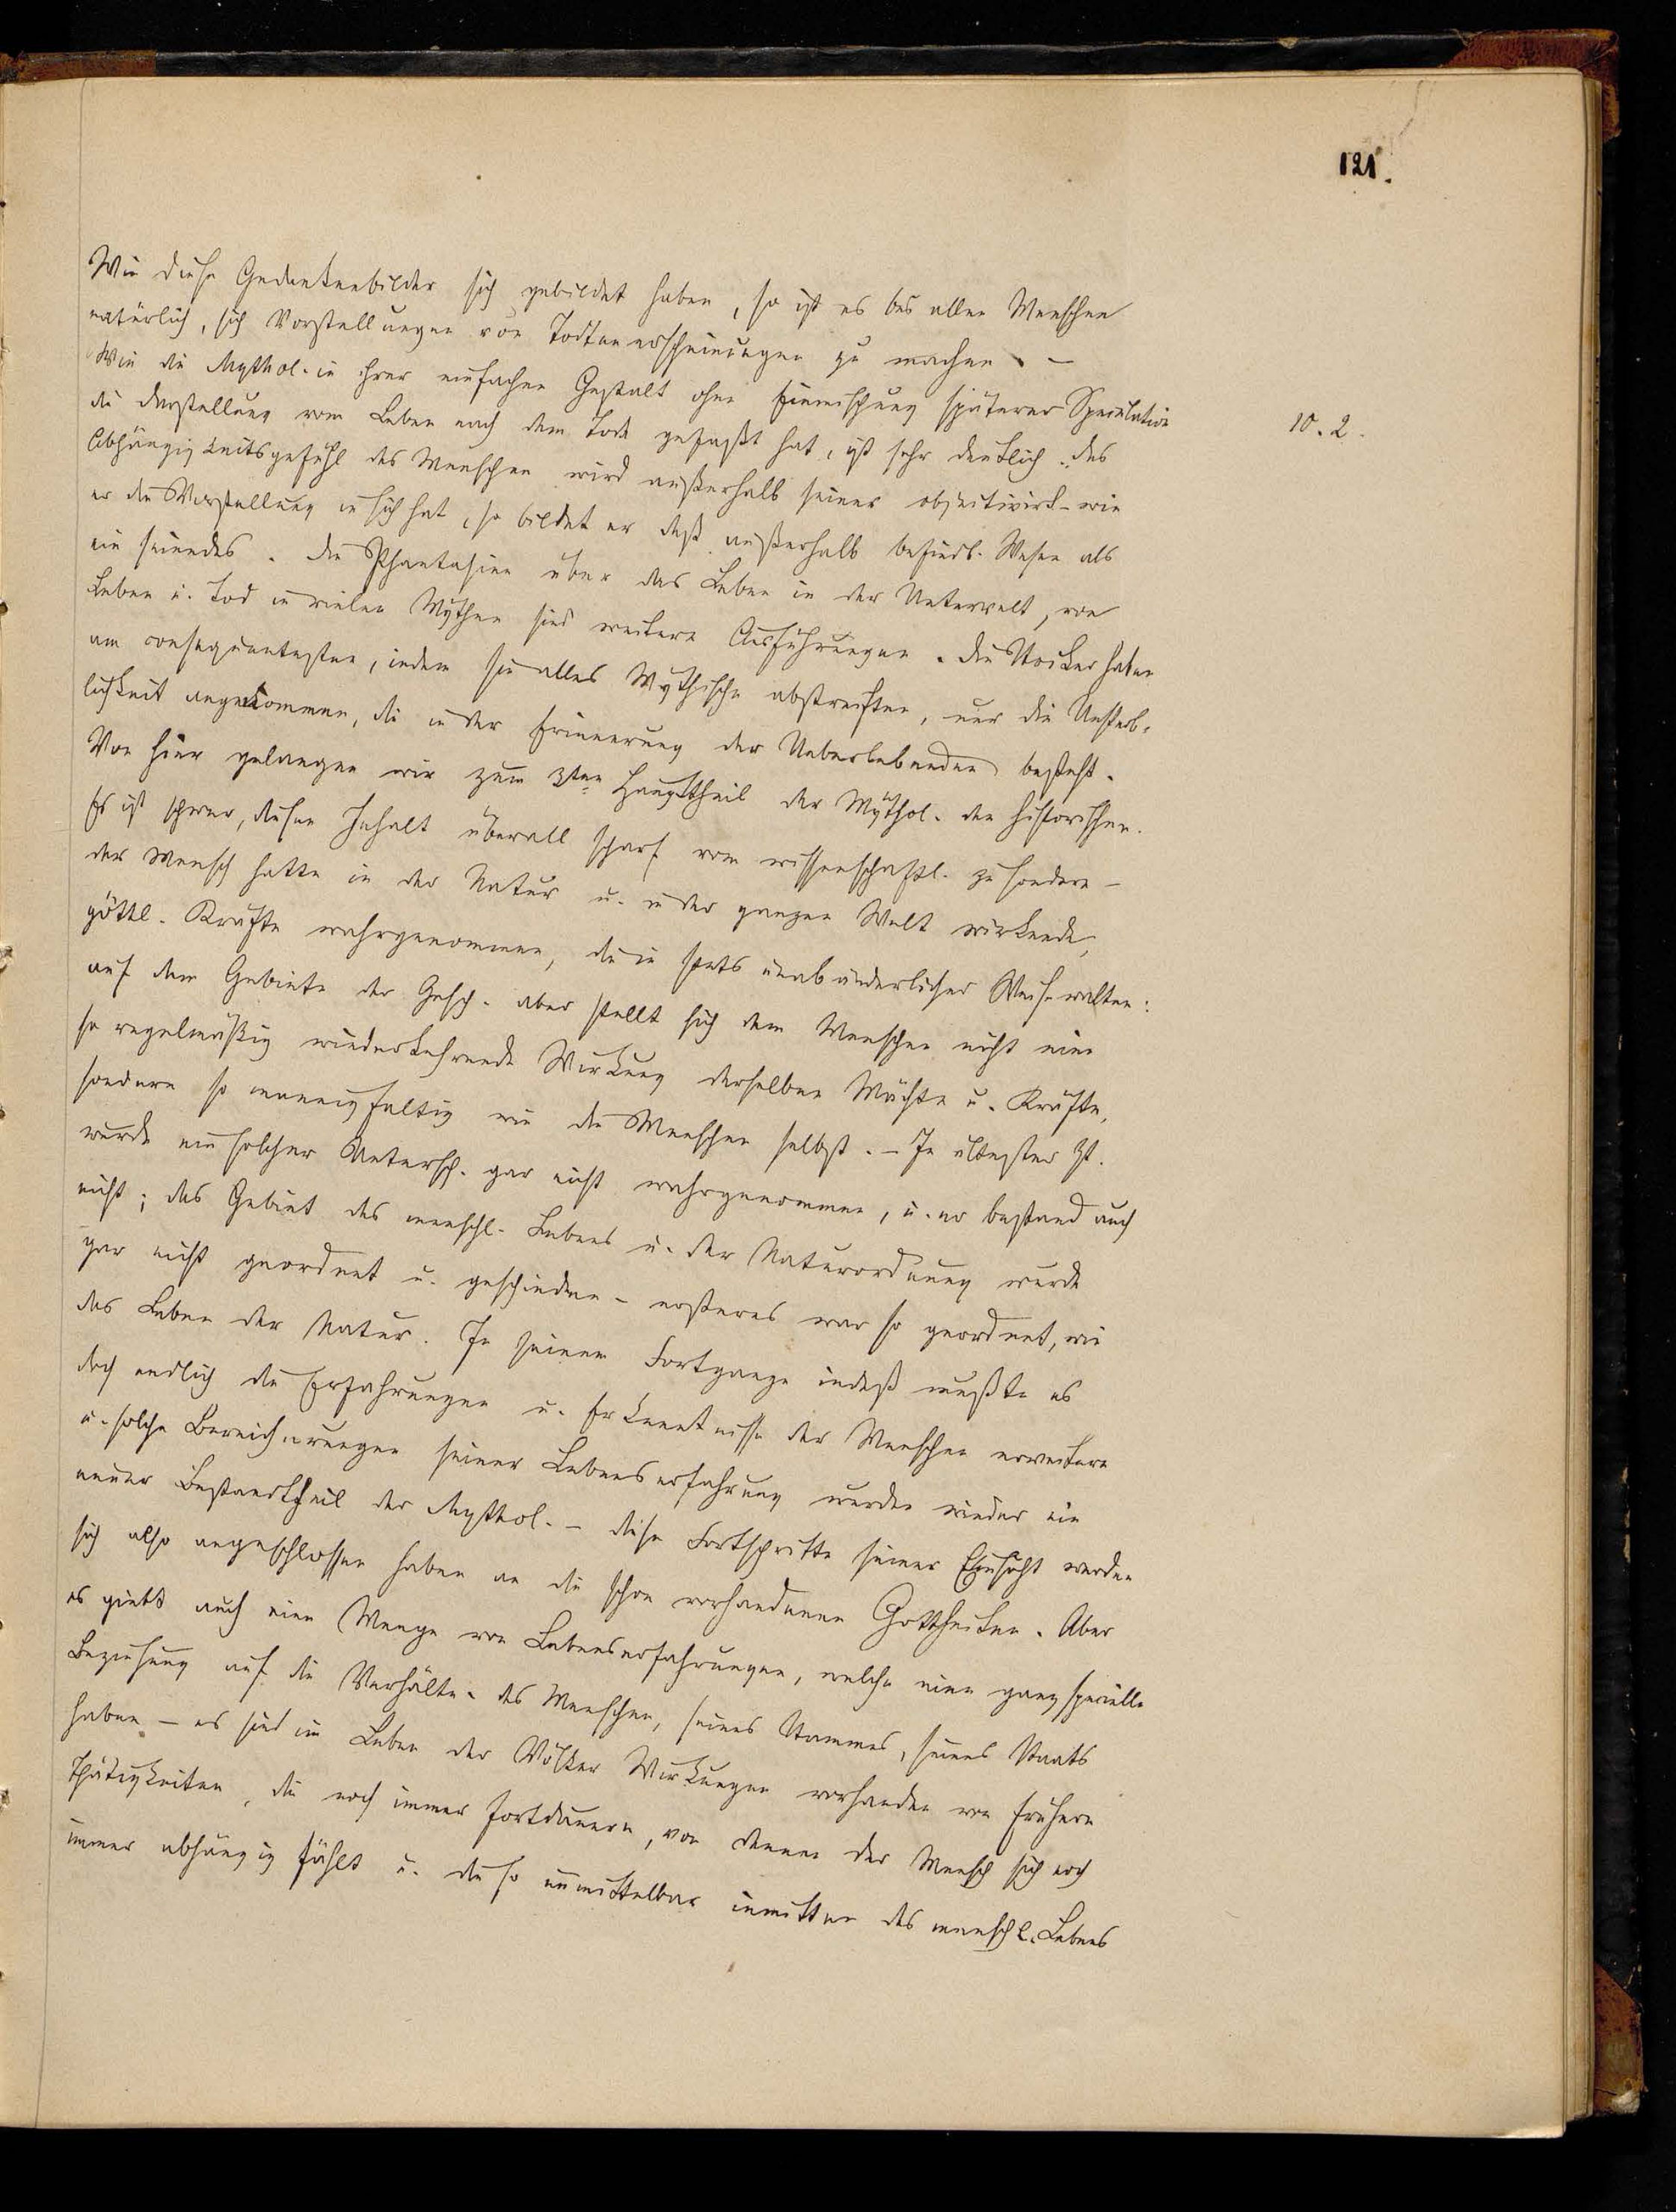 121.
Wie diese Gedankenbilder sich gebildet haben, so ist es bei allen Menschen
natürlich, sich Vorstellungen von Todtenerscheinungen zu machen. –
Wie die Mythol. in ihrer einfachen Gestalt ohne Einmischung späterer Speculation
10. 2.
die Vorstellung vom Leben nach dem Tode gefaßt hat, ist sehr deutlich: das
Abhängigkeitsgefühl des Menschen wird außerhalb seiner objectivirt – wie
er die Vorstellung in sich hat, so bildet er dieß außerhalb befindl. Wesen als
ein seiendes. Die Phantasien über das Leben in der Unterwelt, von
Leben u. Tod in vielen Mythen sind weitere Ausführungen. Die Stoiker haben
am consequentesten, indem sie alles Mythische abstreiften, nur die Unsterb-
lichkeit angenommen, die in der Erinnerung der Ueberlebenden besteht.
Von hier gelangen wir zum 3ten Haupttheil der Mythol. den historischen.
Es ist schwer, diesen Inhalt überall scharf vom wissenschaftl. zu sondern –
der Mensch hatte in der Natur u. in der ganzen Welt wirkende,
göttl. Kräfte wahrgenommen, die in stets unabänderlicher Weise walten:
auf dem Gebiete der Gesch. aber stellt sich dem Menschen nicht eine
so regelmäßig wiederkehrende Wirkung derselben Mächte u. Kräfte,
sondern so mannigfaltig wie die Menschen selbst. – In ältester Zt.
wurde ein solcher Untersch. gar nicht wahrgenommen, u. er bestand auch
nicht; das Gebiet des menschl. Lebens u. der Naturordnung wurde
gar nicht geordnet u. geschieden – ersteres war so geordnet, wie
das Leben der Natur. In seinem Fortgange indeß mußte es
doch endlich die Erfahrungen u. Erkenntnisse der Menschen erweitern
u. solche Bereicherungen seiner Lebenserfahrung wurden wieder ein
neuer Bestandtheil der Mythol. – diese Fortschritte seiner Einsicht werden
sich also angeschlossen haben an die schon vorhandenen Gottheiten. Aber
es giebt auch eine Menge von Lebenserfahrungen, welche eine ganz specielle
Beziehung auf die Verhältn. des Menschen, seines Stammes, seines Staats
haben – es sind im Leben der Völker Wirkungen vorhanden von frühern
Thätigkeiten, die noch immer fortdauern, von denen der Mensch sich noch
immer abhängig fühlt u. die so unmittelbar inmitten des menschl. Lebens